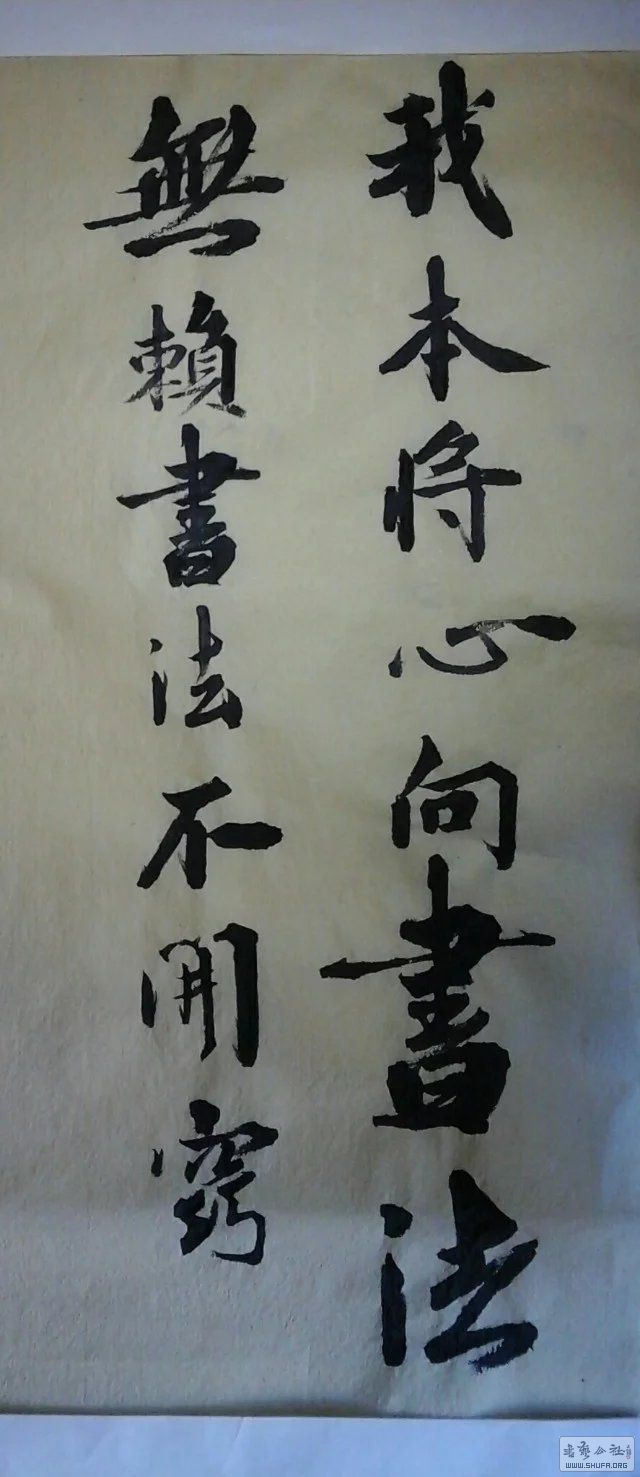 我本将心向書法
無賴書法不開窍
書藝公社
WWW.SHUFA.ORG